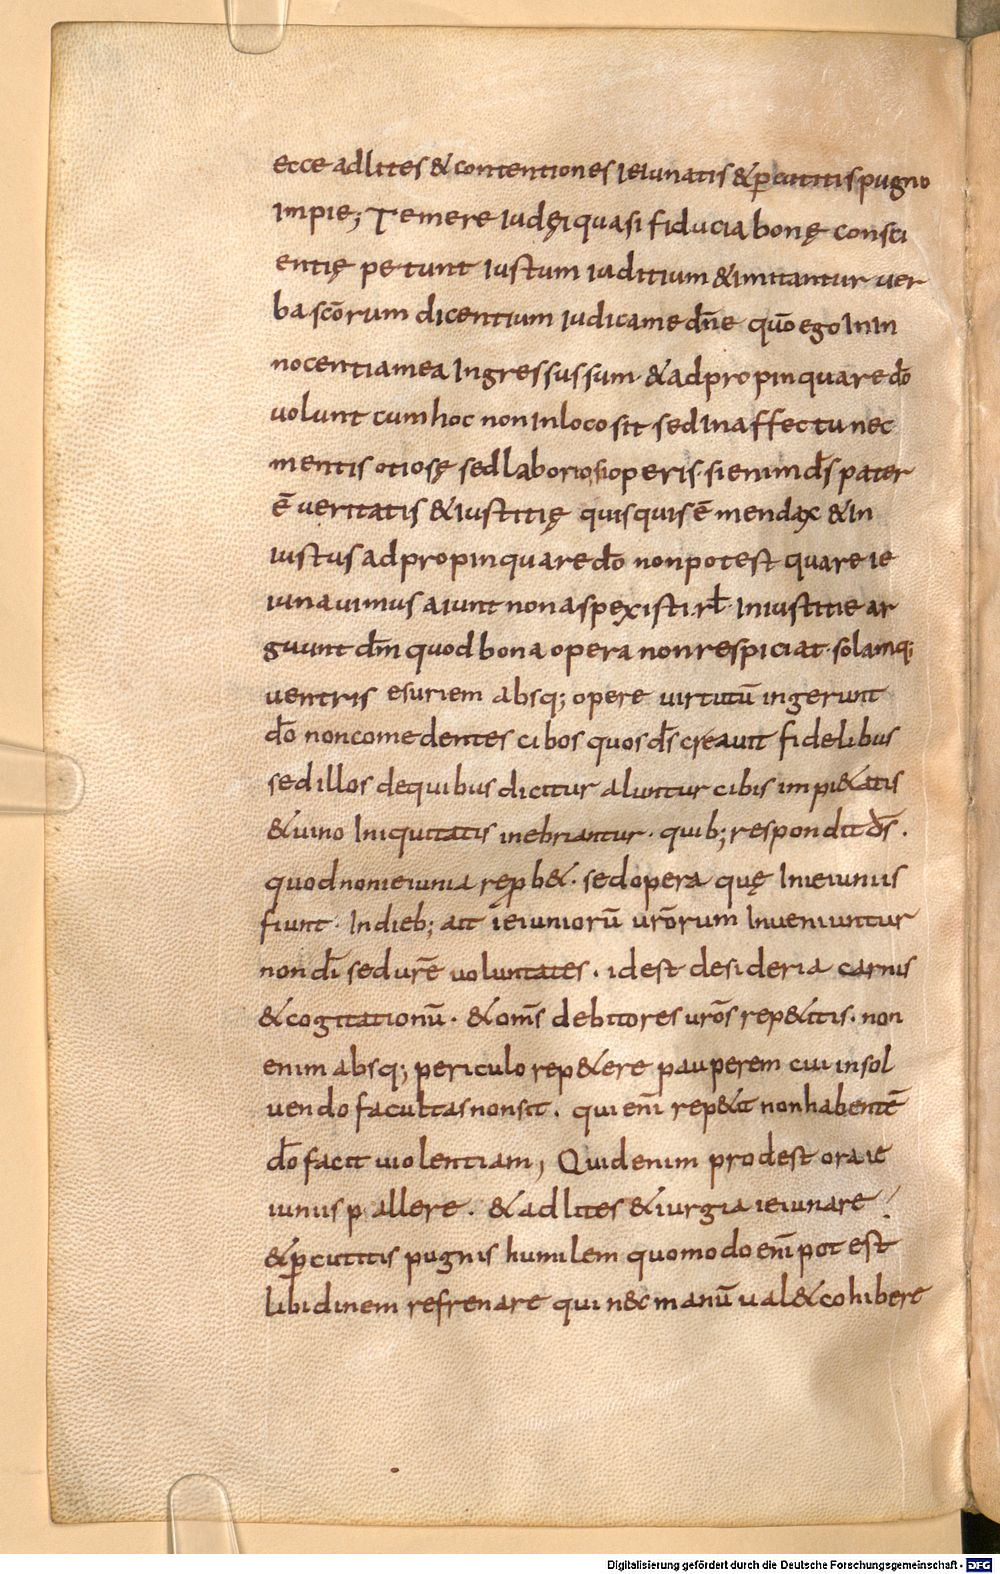 ecce ad lites & contentiones ieiunatis & ꝑcutitis pugno
impie; Temere iudęi quasi fiducia bonę consci
entię petunt iustum iuditium & imitantur uer
ba scōrum dicentium iudica me dn̄e quō ego in in
nocentia mea ingressus sum · & adpropinquare dō
uolunt cum hoc non in loco sit sed in affectu nec
mentis otiosę sed laboriosi operis · si enim ds̄ pater
ē ueritatis & iustitię quisquis ē mendax & in
iustus adpropinquare dō non potest quare ie
iunauimus aiunt non aspexisti · rƚ · Iniustitie ar
guunt dn̄m quod bona opera non respiciat · solamq;
uentris esuriem absq; opere uirtutū ingerunt
dō non comedentes cibos quos ds̄ creauit fidelibus
sed illos de quibus dicitur aluntur cibis impi&atis
& uino iniquitatis inebriantur · quib; respondit ds̄ .
quod non ieiunia rep̱b& · sed opera quę in ieiuniis
fiunt · In dieb; ait ieiuniorū urōrum inueniuntur
non dī sed urēe uoluntates . id est desideria carnis
& cogitationū · & om̄s debitores urōs rep&itis · non
enim absq; periculo rep&ere pauperem cui insol
uendo facultas non sit . qui enī rep&it non habentē
dō facit uiolentiam; Quid enim prodest ora ie
iuniis pallere . & ad lites & iurgia ieiunare
& ꝑcutitis pugnis humilem quomodo enī potest
libidinem refrenare qui nec manū ual& cohibere
Digitalisierung gefördert durch die Deutsche Forschungsgemeinschaft - DFG